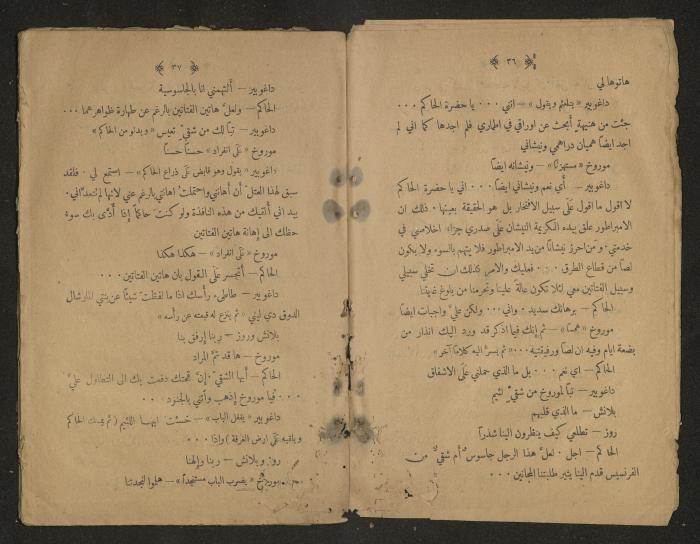 ٣٦
هاتوها لي
داغوبير «يتلعثم ويقول» — انني ٠٠٠ يا حضرة الحاكم ٠٠٠
جئت من هنيهة أبحث عن اوراقي في اطماري فلم اجدها كما اني لم
اجد ايضاً هميان دراهمي ونيشاني
موروخ «مستهزئاً» — ونيشانه ايضاً
داغوبير — أي نعم ونيشاني ايضاً ٠٠٠ اني يا حضرة الحاكم
لا اقول ما اقول علَى سبيل الافتخار بل هو الحقيقة بعينها ٠ ذلك ان
الامبراطور علق بيده الكريمة النيشان علَى صدري جزاء اخلاصي في
خدمتي ٠ ومن احرز نيشاناً من يد الامبراطور فلا يتهم بالسوء ولا يكون
لصاً من قطاع الطرق ٠٠٠ فعليك والامر كذلك ان تخلي سبيلي
وسبيل الفتاتين معي لئلا تكون عالة علينا وتحرمنا من بلوغ غايتنا
الحاكم — برهانك سديد ٠ واني ٠٠٠ ولكن عليَّ واجبات ايضاً
موروخ «همساً» — ثم إنك فيما اذكر قد ورد اليك انذار من
بضعة ايام وفيه ان لصاً ورفيقتيه ٠٠٠ «ثم يسرُّ اليه كلاماً آخر»
الحاكم — اي نعم ٠٠٠ بل ما الذي حملني علَى الاشفاق
داغوبير — تباً لموروخ من شقيٍّ لئيم
بلانش — ما الذي قلبهم
روز — تطلعي كيف ينظرون الينا شذراً
الحاكم — اجل ٠ لعلَّ هذا الرجل جاسوسٌ أم شقيٌّ من
الفرنسيس قدم الينا يثير طلبتنا المجانين ٠٠٠
٣٧
داغوبير — ألتهمني انا بالجاسوسية
الحاكم — ولعلَّ هاتين الفتاتين بالرغم عن طهارة ظواهرهما ٠٠٠
داغوبير — تباً لك من شقيٍّ تعيس «ويدنو من الحاكم»
موروخ «علَى انفراد» — حسناً حسناً
داغوبير «يقول وهو قابض علَى ذراع الحاكم» — استمع لي ٠ فلقد
سبق لهذا العتلّ أن أهانني واحتملت اهانتي بالرغم عني لانها لم تتعداني ٠
بيد اني ألقيك من هذه النافذة ولو كنتَ حاكماً إذا أدَّى بك سوء
حظك الى إهانة هاتين الفتاتين
موروخ «علَى انفراد» — هكذا هكذا
الحاكم — أتجسر علَى القول بان هاتين الفتاتين ٠٠٠
داغوبير — طاطئ رأسك اذا ما لفظت شيئاً عن بنتي المارشال
الدوق دي ليني «ثم ينزع له قبعته عن رأسه»
بلانش وروز — ربنا إرفق بنا
موروخ — ها قد تمَّ المراد
الحاكم — أيها الشقيّ ٠ إنَّ قحتك دفعت بك الى التطاول عليَّ
٠٠٠ فيا موروخ إذهب وأتني بالجنود ٠٠٠
داغوبير «يقفل الباب» — خسئت ايها اللئيم (ثم يمسك الحاكم
ويلقيه علَى ارض الغرفة) واذا ٠٠٠
روز وبلانش — ربنا والهنا
موروخ «يضرب الباب مستنجداً» — هلموا لنجدتنا